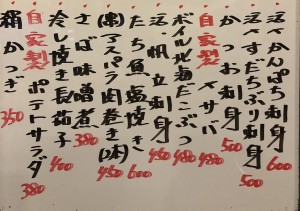 活〆かんぱち刺身 600
活〆すだちぶり刺身 500
かつお刺身 500
自家製 〆サバ 480
ボイル北海だこぶつ 480
活〆帆立刺身 450
たち魚塩焼き 600
(串)アスパラ肉巻き(2本) 450
さば味噌煮 380
冷し焼き長茄子 400
自家製 ポテトサラダ 380
絹かつぎ 350